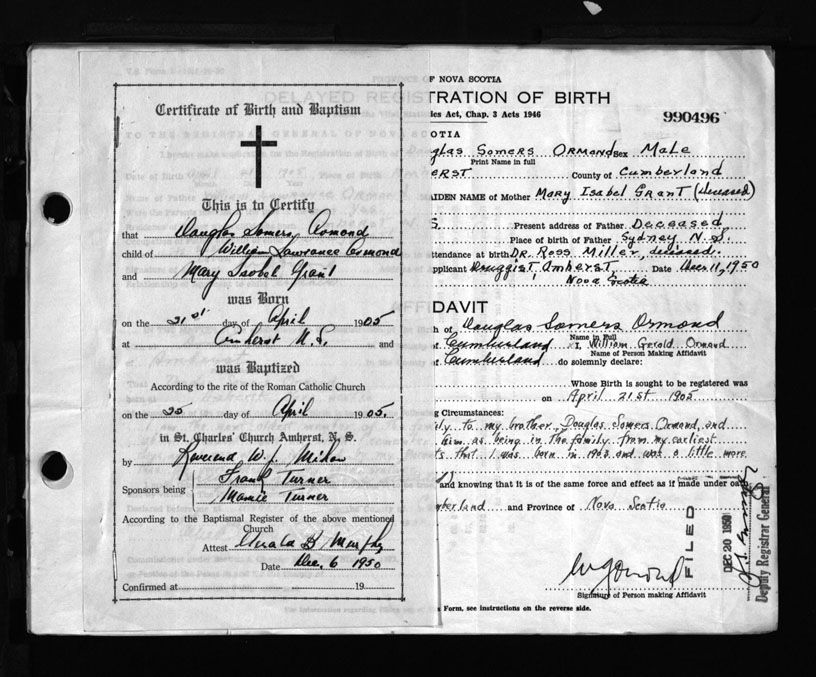 Certificate of Birth and Baptism
This is to Certify
that Douglas Somers Ormond
child of William Lawrance Ormond
and Mary Isobel Grant
was Born
on the 21st day of April 1905
at Amherst N.S. and
was Baptized
According to the rite of the Roman Catholic Church
on the 25 day of April 1905.
in St. Charles' Church Amherst, N. S.
by Reverend W. J.
Sponsors being Frank Turner
Mamie Turner
According to the Baptismal Register of the above mentioned
Church
Attest B Murphy
Date Dec. 6 1950
Confirmed at 19
OF NOVA SCOTIA
DELAYED REGISTRATION OF BIRTH
ics Act, Chap. 3 Acts 1946
990496
OTIA
glas Somers ORMOND Sex Male
Print Name in full
ERST County of Cumberland
AIDEN NAME of Mother MARY ISABEL GRANT (deceased)
S. Present address of Father Deceased
Place of birth of Father Sydney N.S.
ttendance at birth DR. Ross Miller, deceased.
pplicant Druggist, Amherst, Date Dec. 11, 1950
Nova Scotia
DAVIT
h of Douglas Somers Ormond
Name in Full
of Cumberland I, William Gerald Ormond
Name of Person Making Affidavit
of Cumberland do solemnly declare:
Whose Birth is sought to be registered was
on April 21st 1905
g Circumstances:
ily to my brother, Douglas Somers Ormond, and
him as being in the family from my earliest
ts that I was born in 1903 and was a little more
and knowing that it is of the same force and effect as if made under oath
mberland and Province of Nova Scotia
FILED
DEC 20 1950
Deputy Registrar General
W G Ormond
Signature of Person making Affidavit
Form, see instructions on the reverse side.